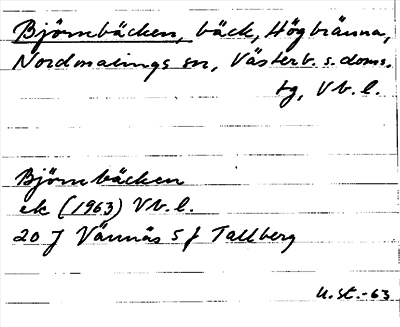 Björnbäcken, bäck, Högbränna,
Nordmalings sn, Västerb. s. doms.
tg, Vb. l.
Björnbäcken
ek (1963) Vb. l.
20 J Vännäs 5 f Tallberg
U.St.-63